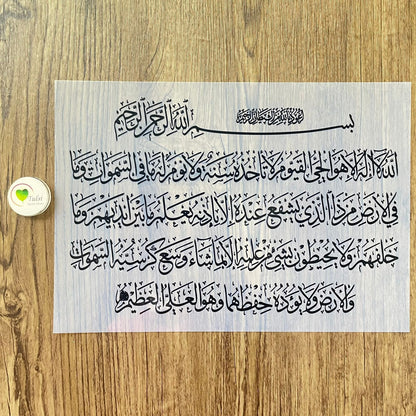 أعوذ بالله من الشيطان الرجيم
بسم الله الرحمن الرحيم
الله لا إله إلا هو الحي القيوم لا تأخذه سنة ولا نوم له ما في السموات وما
في الأرض من ذا الذي يشفع عنده إلا بإذنه يعلم ما بين أيديهم وما
خلفهم ولا يحيطون بشيء من علمه إلا بما شاء وسع كرسيه السموات
والأرض ولا يؤده حفظهما وهو العلي العظيم
Tulsi